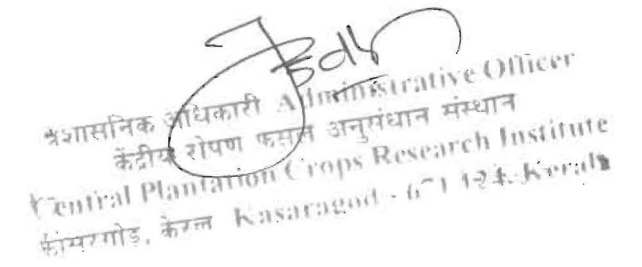 प्रशासनिक अधिकारी Administrative Officer
केंद्रीय रोपण फसल अनुसंधान संस्थान
Central Plantation Crops Research Institute
कासरगोड, केरल Kasaragod - 671 124, Kerala